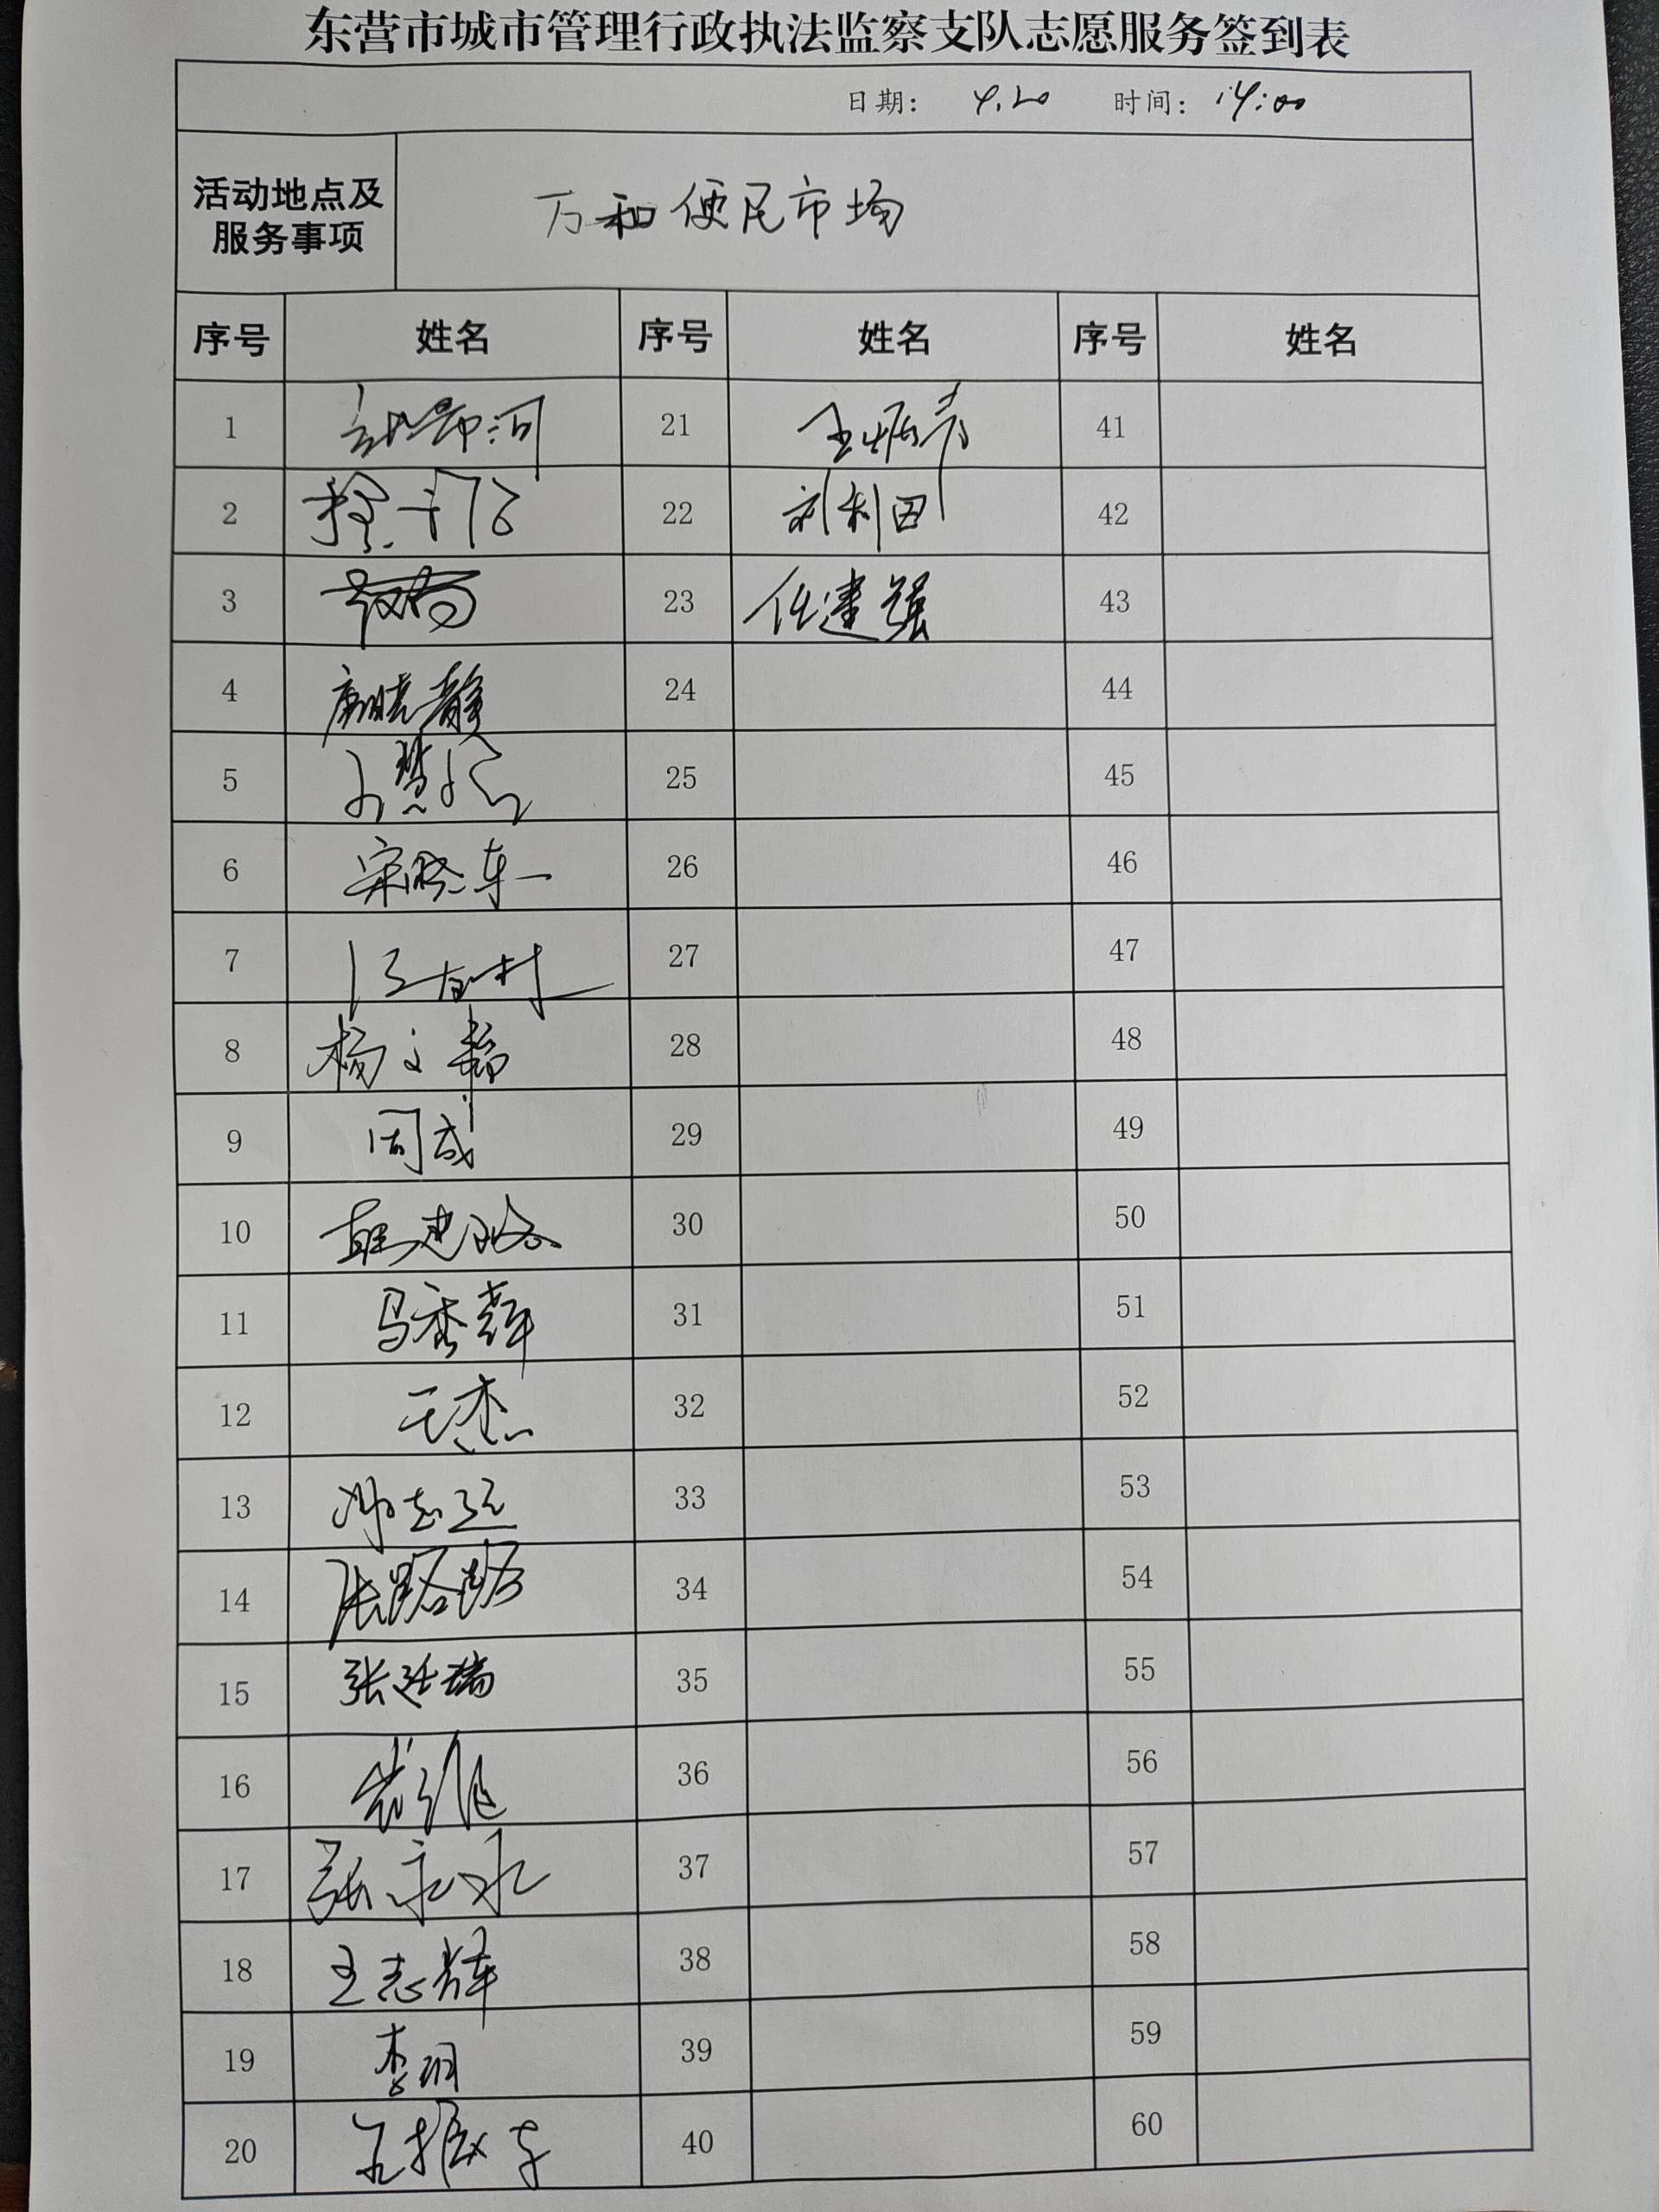 东营市城市管理行政执法监察支队志愿服务签到表
日期： 4.20 时间：14:00
活动地点及
服务事项
万和便民市场
序号 姓名 序号 姓名 序号 姓名
1 21 41
2 22 刘利团 42
3 23 任建强 43
4 24 44
5 25 45
6 宋晓东 26 46
7 27 47
8 杨文静 28 48
9 周成 29 49
10 30 50
11 马秀辉 31 51
12 王杰 32 52
13 33 53
14 张路路 34 54
15 张廷瑞 35 55
16 36 56
17 张永水 37 57
18 王志辉 38 58
19 李明 39 59
20 40 60